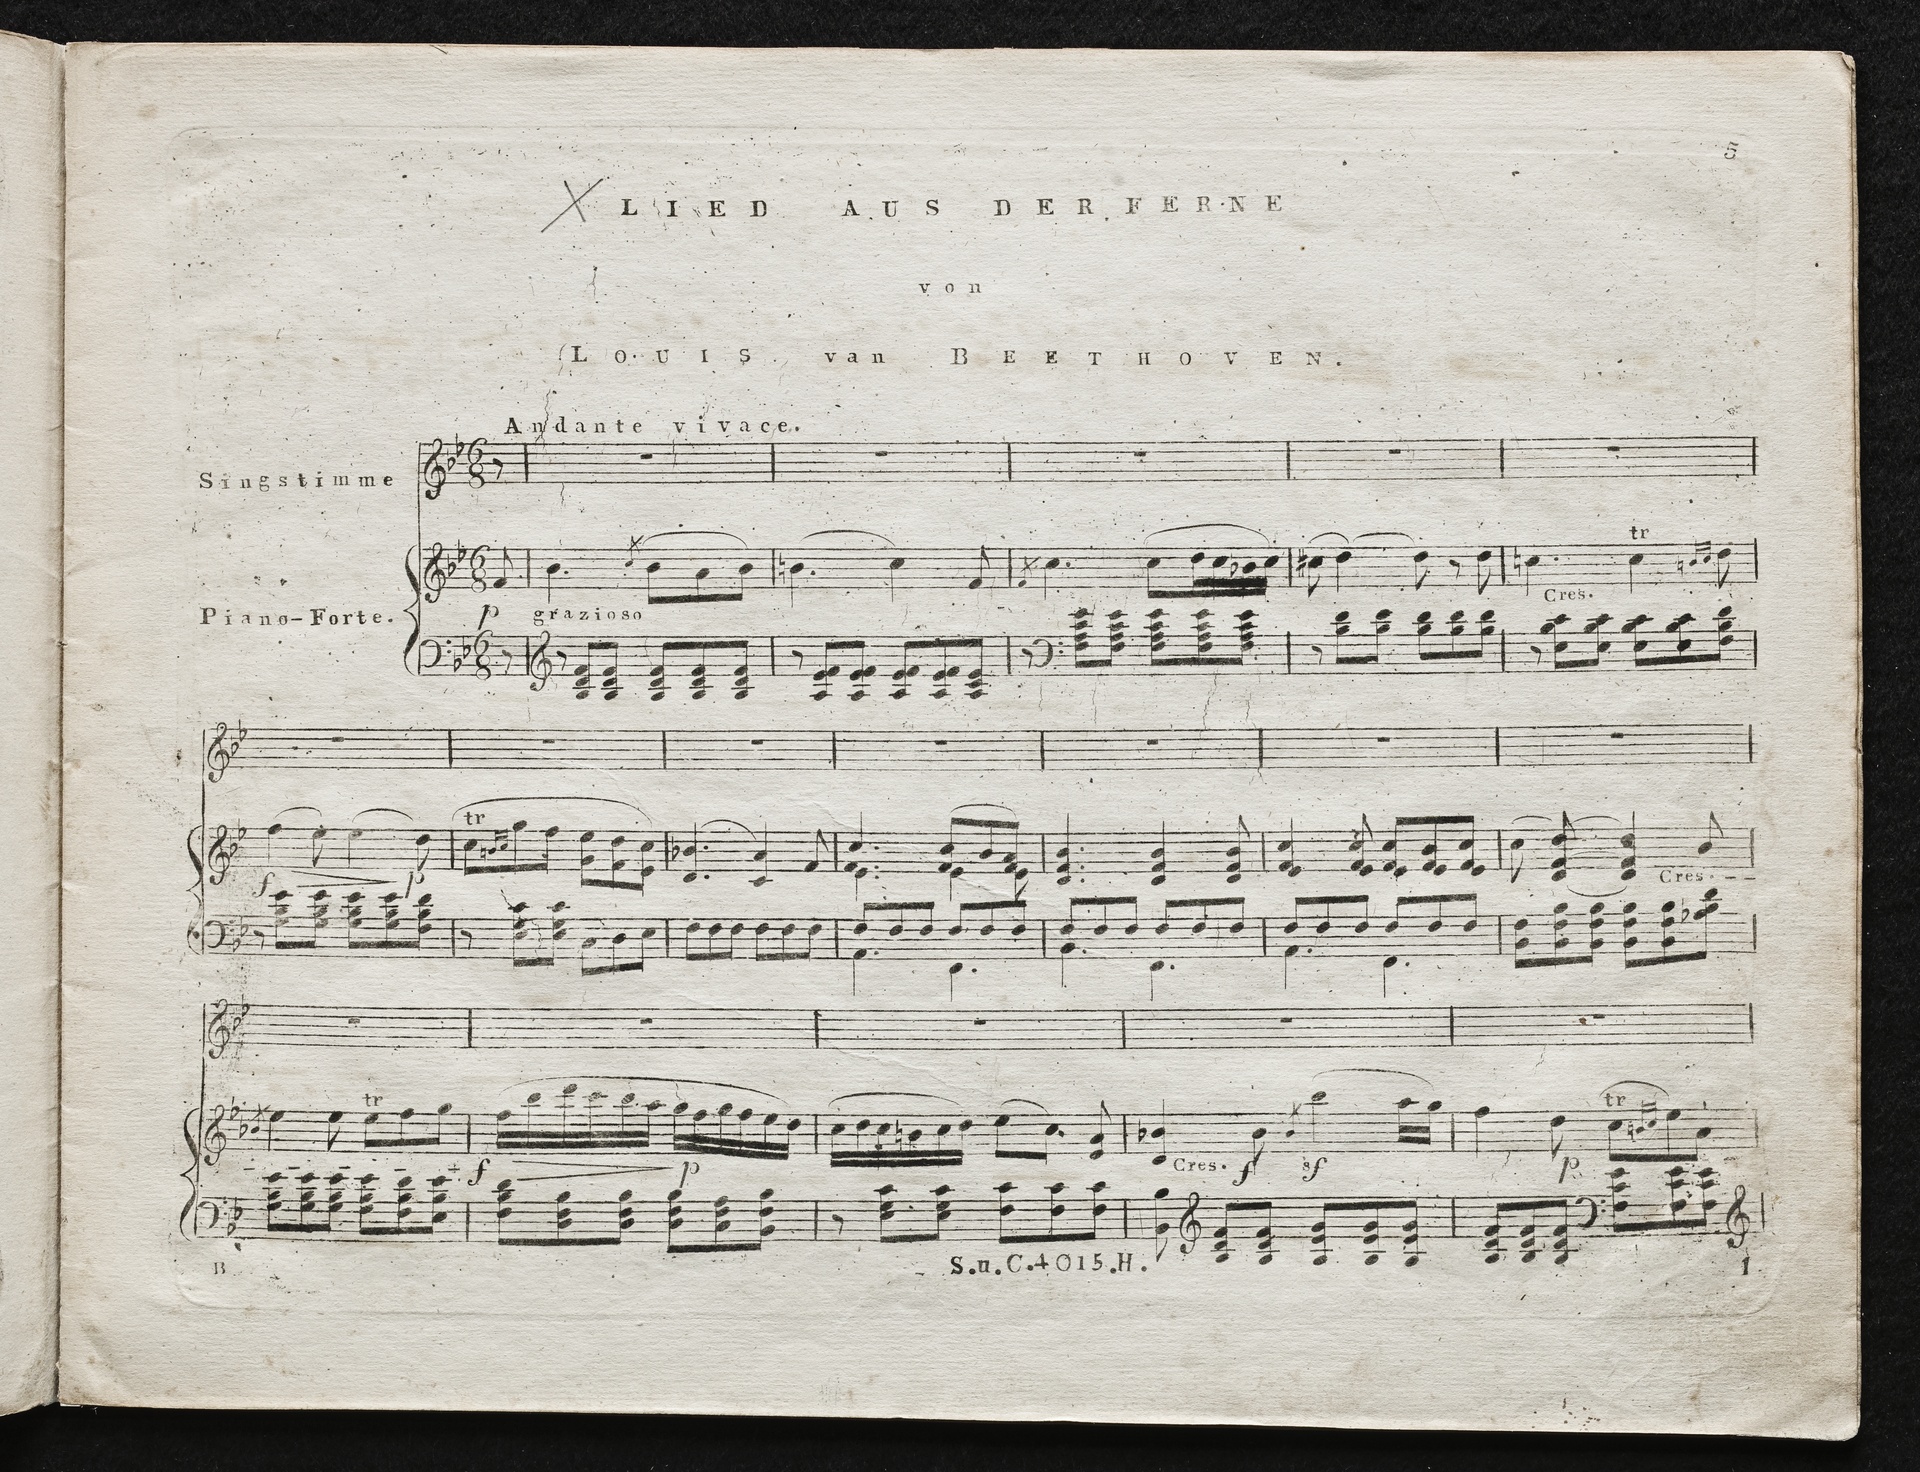 5
LIED AUS DER FERNE
von
LOUIS van BEETHOVEN.
Andante vivace.
Singstimme
tr
Cres.
Piano-Forte.
p grazioso
tr
f p
Cres.
tr
tr
f p
Cres. f sf
p
B S.u.C.4015.H. 1